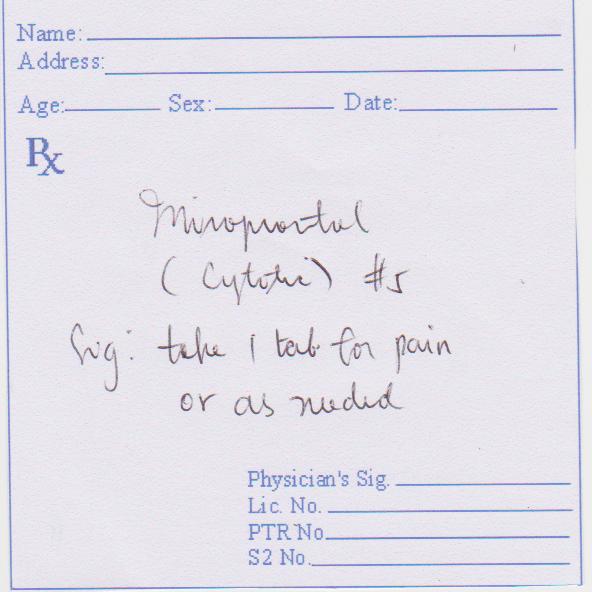 Name:
Address:
Age: Sex: Date:
Rx
Misoprostol
(Cytotec) #5
Sig: take 1 tab for pain
or as needed
Physician's Sig.
Lic. No.
PTR No.
S2 No.